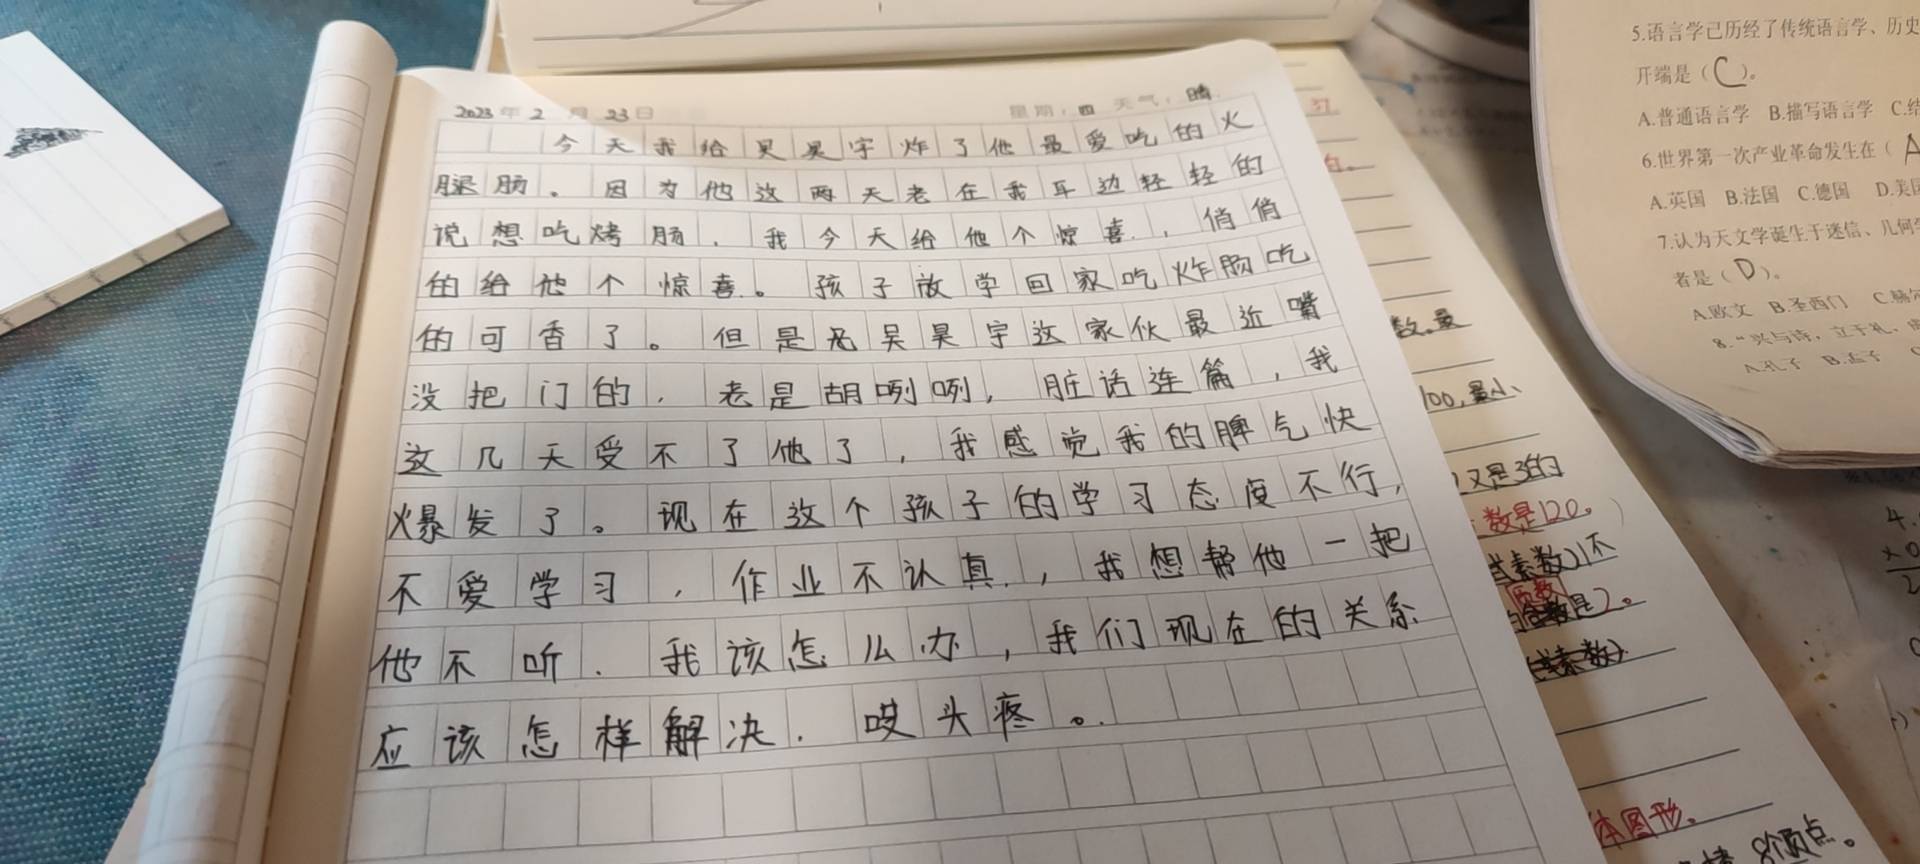 2023年2月23日 星期：四 天气：晴
今天我给吴昊宇炸了他最爱吃的火
腿肠。因为他这两天老在我耳边轻轻的
说想吃烤肠，我今天给他个惊喜，俏俏
的给他个惊喜。孩子放学回家吃炸肠吃
的可香了。但是吴昊宇这家伙最近嘴
没把门的，老是胡咧咧，脏话连篇，我
这几天受不了他了，我感觉我的脾气快
爆发了。现在这个孩子的学习态度不行，
不爱学习，作业不认真，我想帮他一把
他不听．我该怎么办，我们现在的关系
应该怎样解决．哎头疼。
5.语言学已历经了传统语言学、历史
开端是（C）。
A.普通语言学 B.描写语言学 C.结
6.世界第一次产业革命发生在（A
A.英国 B.法国 C.德国 D.美国
7.认为天文学诞生于迷信、几何学
者是（D）。
A.欧文 B.圣西门 C.赫
8."兴与诗，立于礼，
A.孔子 B.孟子
数。最
100,最小
又是3的
数是120。
素数)不
质数
合数是2。
素数)
体图形。
8个顶点。